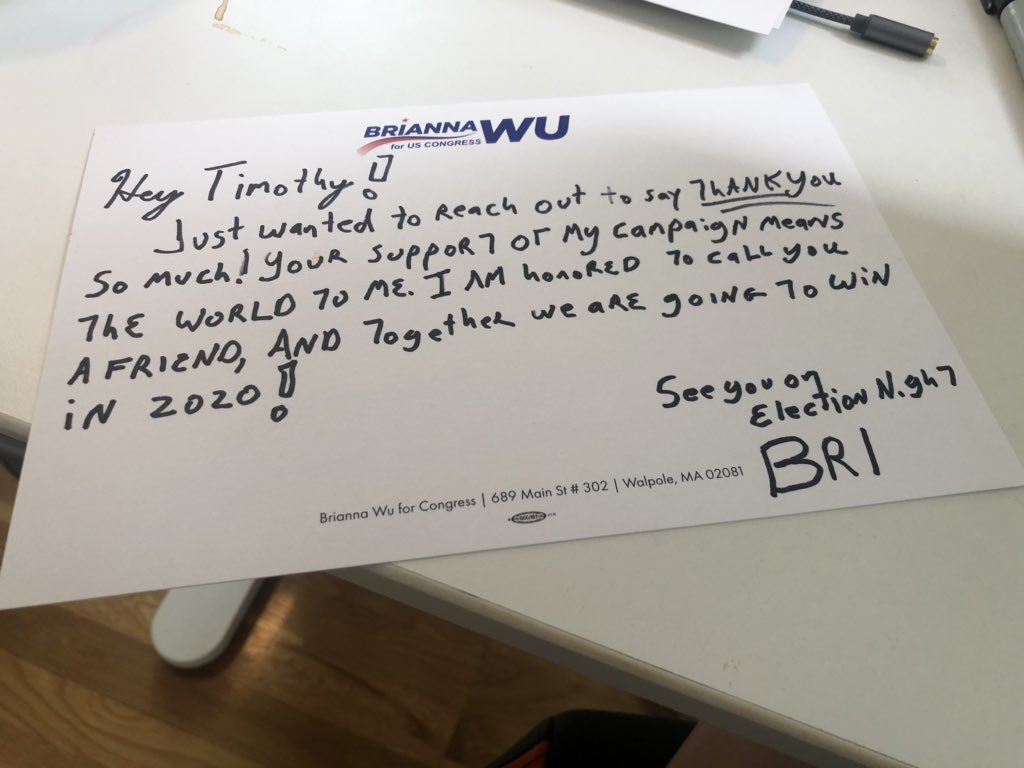 BRIANNA WU
for US CONGRESS
Hey Timothy!
Just wanted to Reach out to say THANK YOU
So much! YOUR SUPPORT OF My campaign MEANS
THE WORLD TO ME. I AM honORED TO CALL YOU
A FRIEND, AND Together we aRE gOING TO WiN
iN 2020!
See you on
Election Night
BRI
Brianna Wu for Congress | 689 Main St # 302 | Walpole, MA 02081